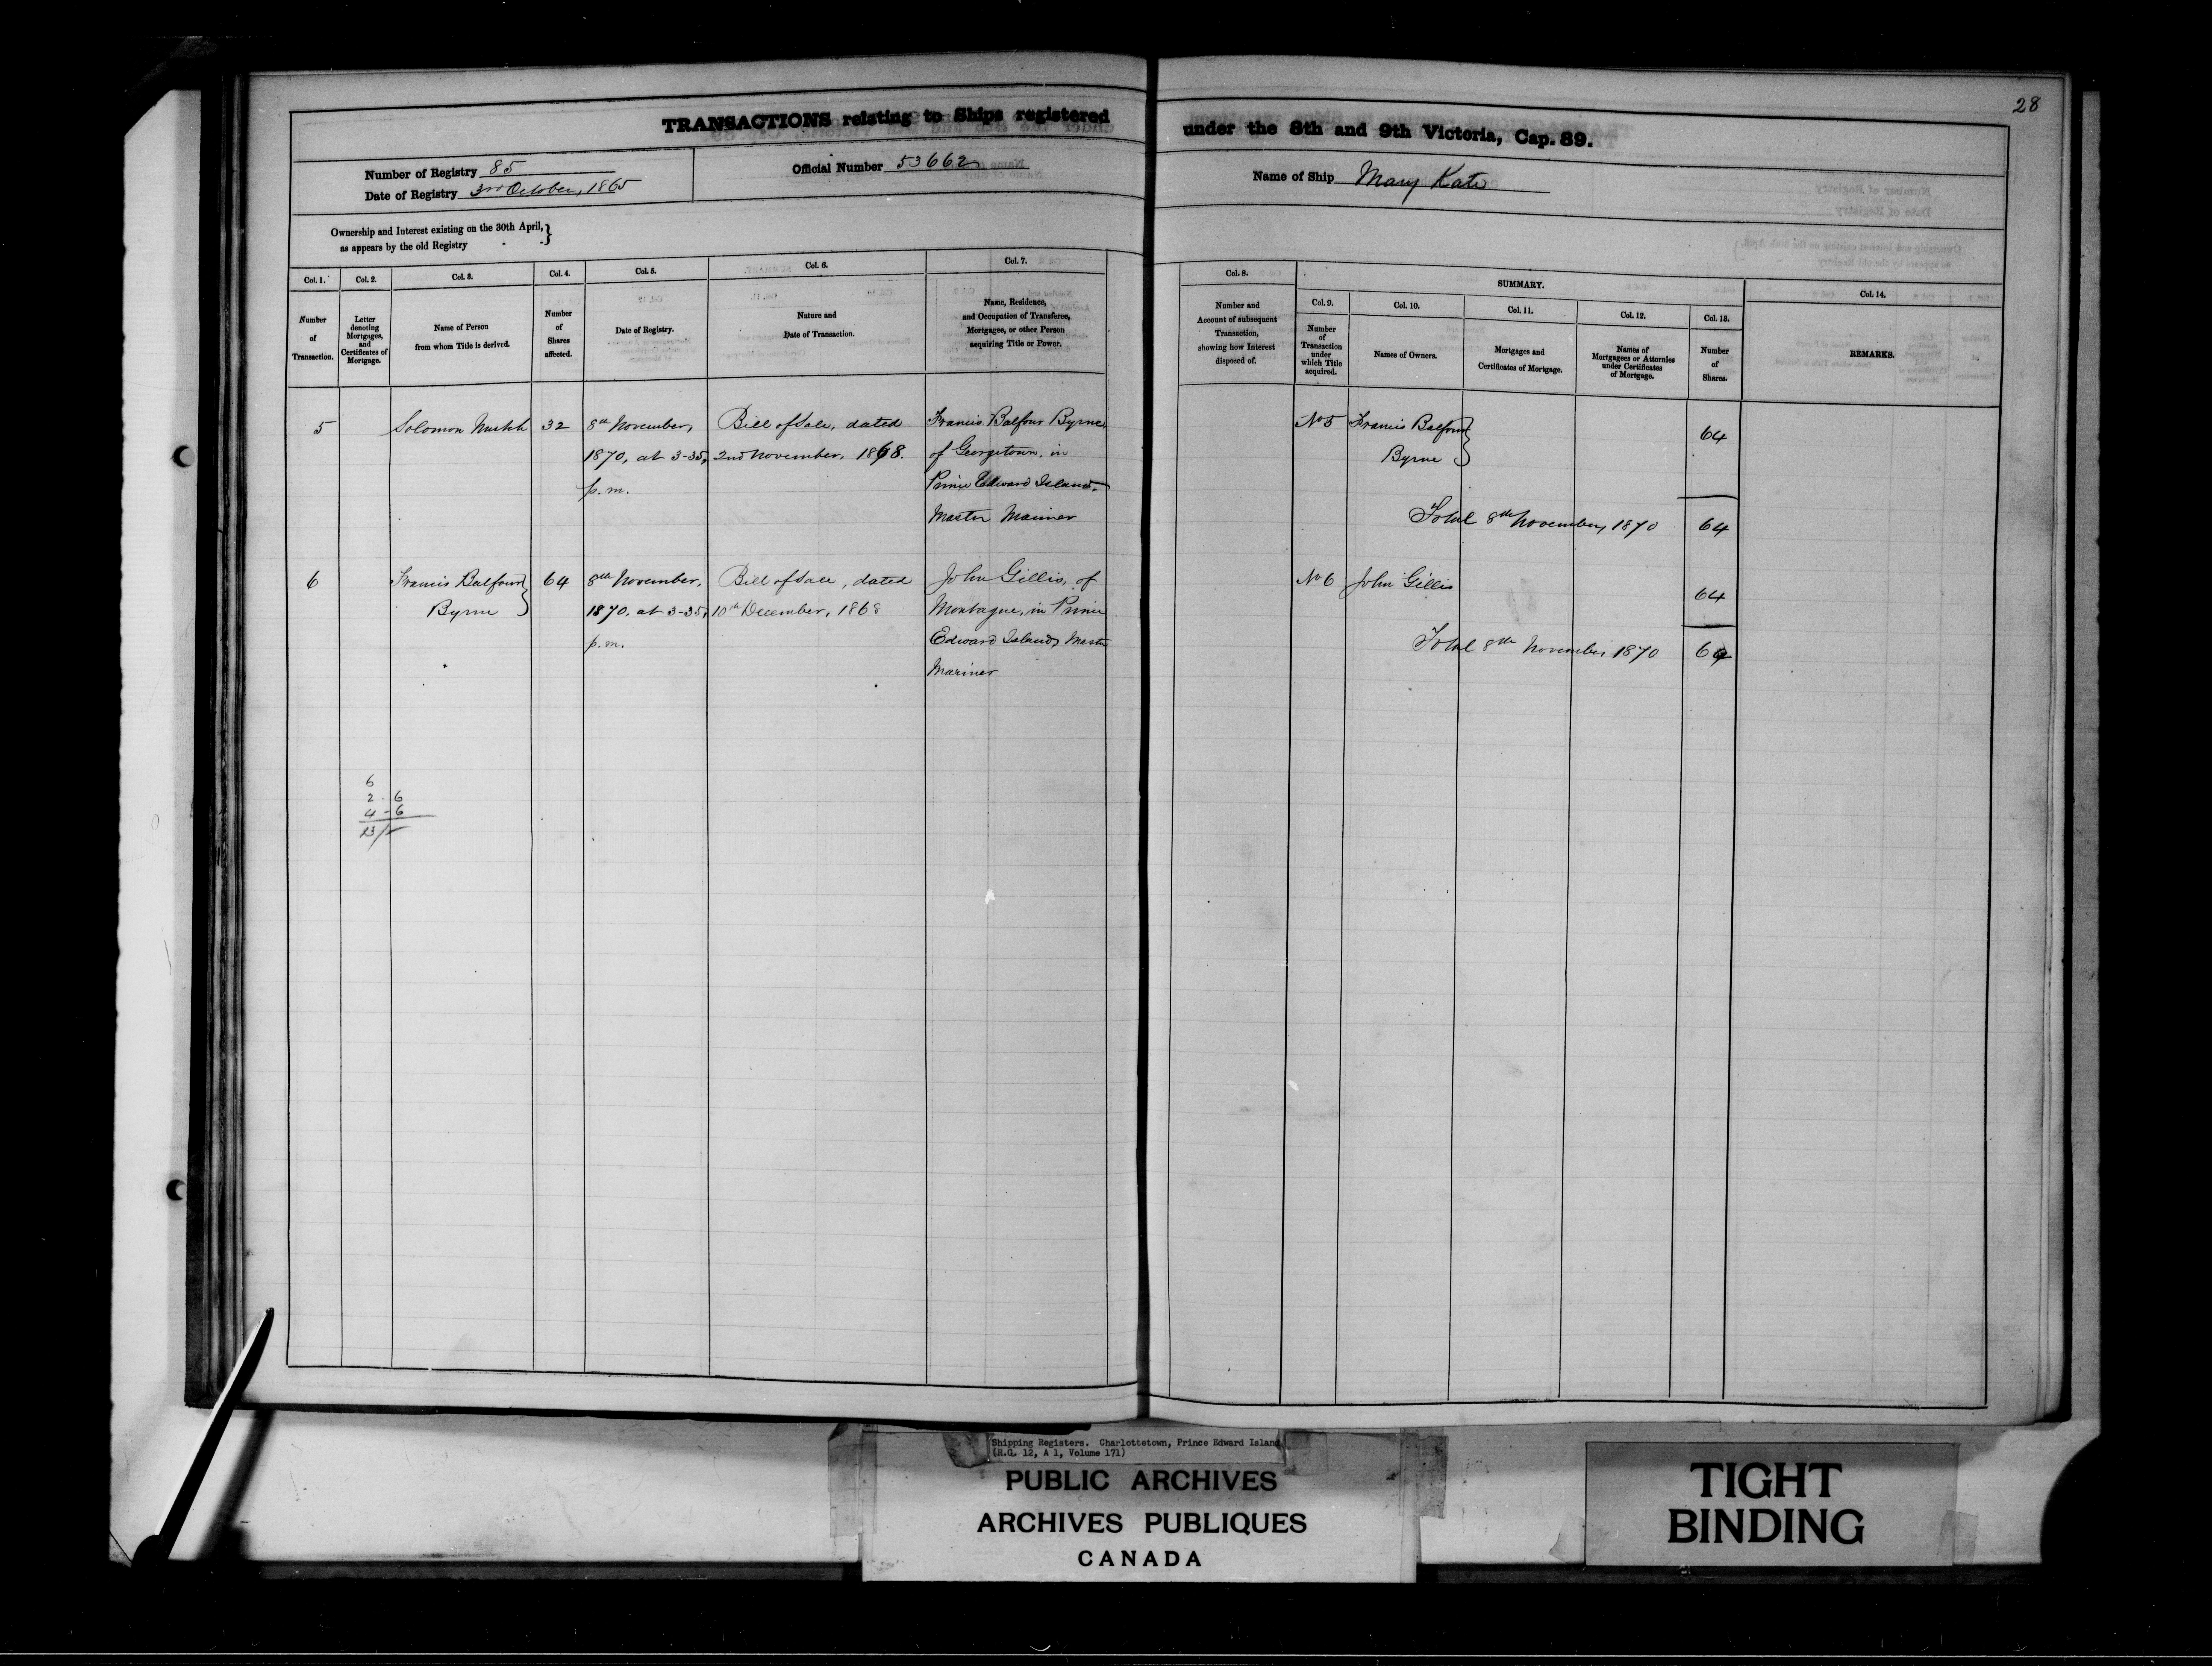 28
TRANSACTIONS relating to Ships registered under the 8th and 9th Victoria, Cap. 89.
Number of Registry 85
Date of Registry 3rd October, 1865
Official Number 53662
Name of Ship Mary Kate
Ownership and Interest existing on the 30th April, }
as appears by the old Registry
Col. 1.
Number
of
Transaction.
Col. 2.
Letter
denoting
Mortgages,
and
Certificates of
Mortgage.
Col. 3.
Name of Person
from whom Title is derived.
Col. 4.
Number
of
Shares
affected.
Col. 5.
Date of Registry.
Col. 6.
Nature and
Date of Transaction.
Col. 7.
Name, Residence,
and Occupation of Transferee,
Mortgagee, or other Person
acquiring Title or Power.
Col. 8.
Number and
Account of subsequent
Transaction,
showing how Interest
disposed of.
SUMMARY.
Col. 9.
Number
of
Transaction
under
which Title
acquired.
Col. 10.
Names of Owners.
Col. 11.
Mortgages and
Certificates of Mortgage.
Col. 12.
Names of
Mortgagees or Attornies
under Certificates
of Mortgage.
Col. 13.
Number
of
Shares.
Col. 14.
REMARKS.
5
Solomon
32
8th November,
1870, at 3-35,
p.m.
Bill of Sale, dated
2nd November, 1868.
Francis Balfour Byrne,
of Georgetown, in
Prince Edward Island,
Master Mariner
No 5
Francis Balfour }
Byrne
64
Total 8th November, 1870 64
6
Francis Balfour }
Byrne
64
8th November,
1870, at 3-35,
p.m.
Bill of Sale, dated
10th December, 1868
John Gillis, of
Montague, in Prince
Edward Island, Master
Mariner
No 6
John Gillis
64
Total 8th November, 1870 64
6
2-6
4-6
13/-
Shipping Registers. Charlottetown, Prince Edward Island
(R.G. 12, A 1, Volume 171)
PUBLIC ARCHIVES
ARCHIVES PUBLIQUES
CANADA
TIGHT
BINDING